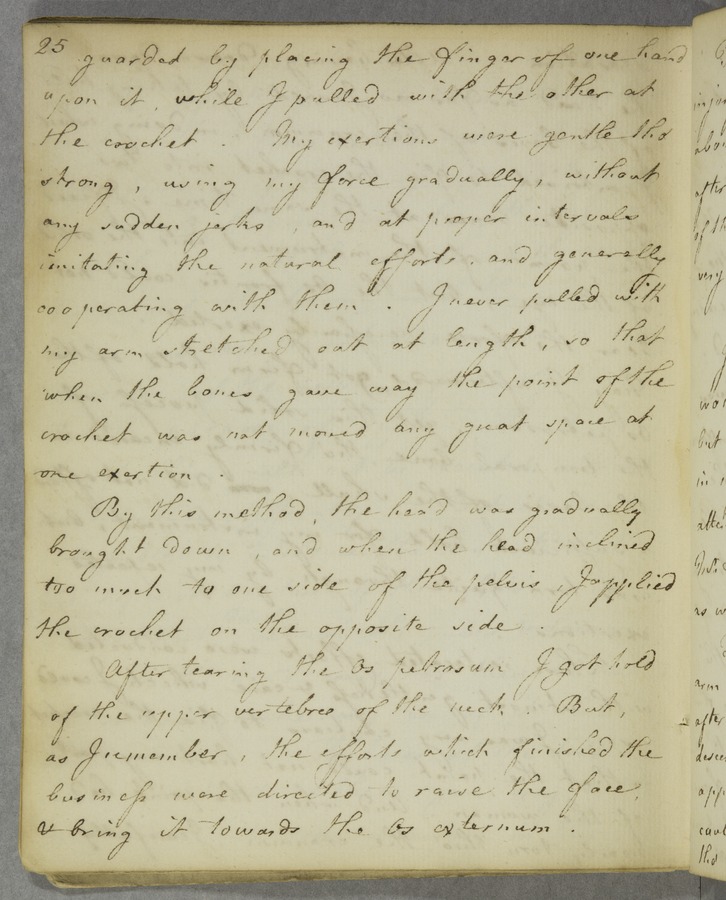 25
guarded by placing the finger of one hand
upon it, while I pulled with the other at
the crochet. My exertions were gentle tho
strong, using my force gradually, without
any sudden jerks, and at proper intervals
imitating the natural efforts, and generally
cooperating with them. I never pulled with
my arm stretched out at length, so that
when the bones gave way the point of the
crochet was not moved any great space at
one exertion.
By this method, the head was gradually
brought down, and when the head inclined
too much to one side of the pelvis, I applied
the crochet on the opposite side.
After tearing the Os petrosum I got hold
of the upper vertebres of the neck. But,
as I remember, the efforts which finished the
business were directed to raise the face,
& bring it towards the Os externum.
very
but
after
arm
after
tho